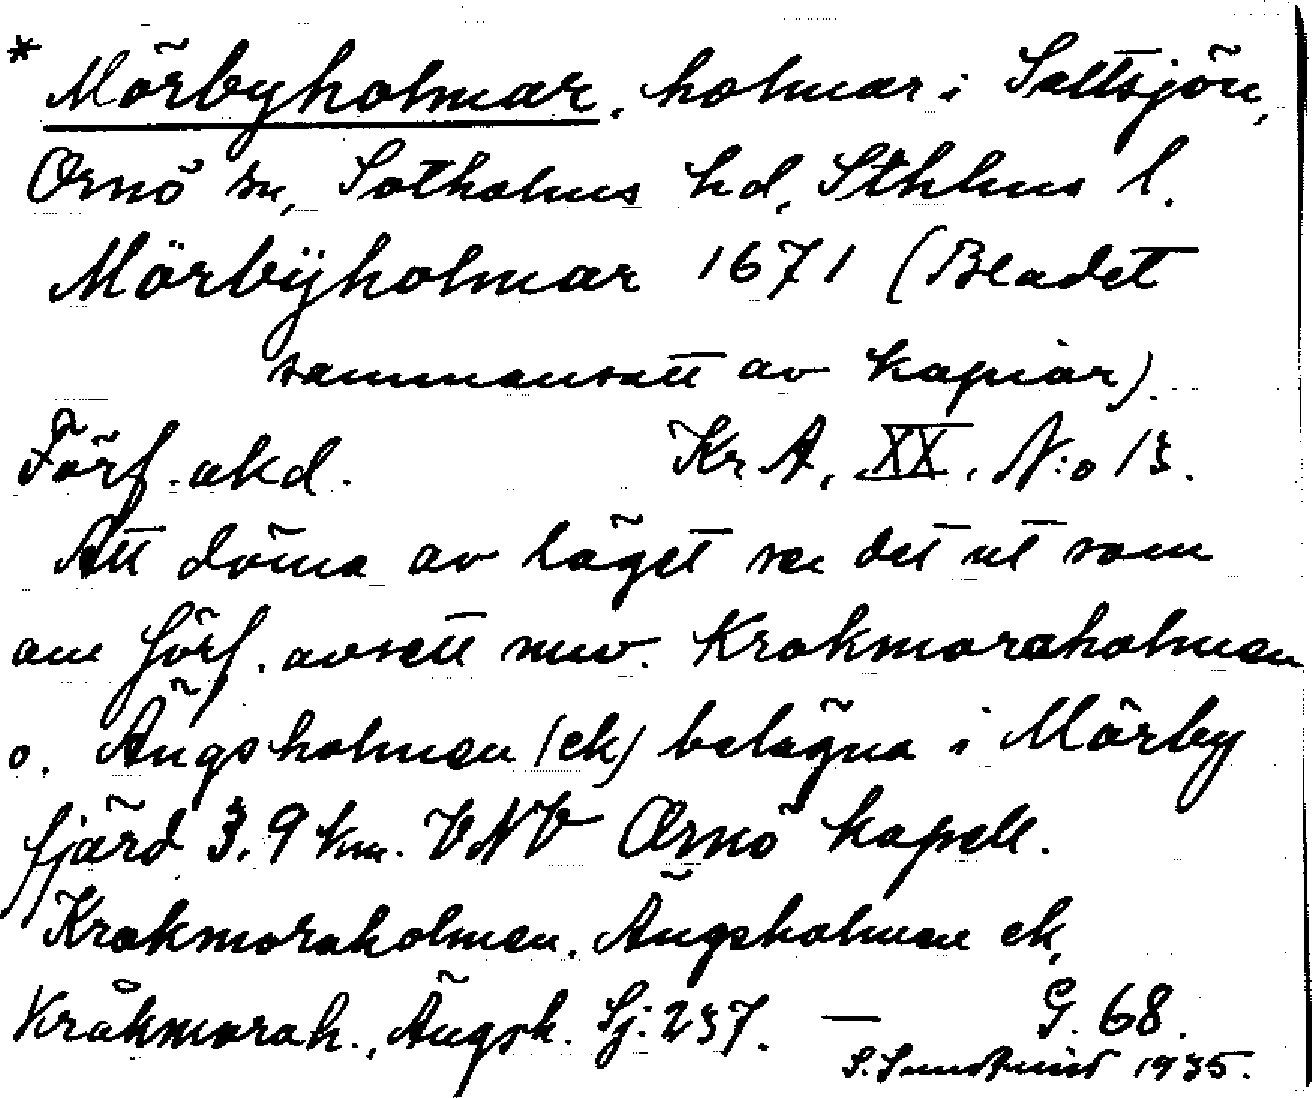 * Mörbyholmar, holmar i Saltsjön,
Ornö sn, Sotholms hd, Sthlms l.
Mörbÿholmar 1671 (Bladet
sammansatt av kopior).
Förf. okd. Kr A, XX, N:o 13.
Att döma av läget ser det ut som
om förf. avsett nuv. Krokmoraholmen
o. Ängsholmen (ek) belägna i Mörby
fjärd 3.9 km. VNV Ornö kapell.
Krokmoraholmen, Ängsholmen ek,
Kråkmorah., Ängsh. Sj: 237. — G. 68.
S. Sundkvist 1935.